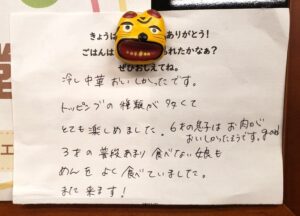 きょうは ありがとう！
ごはんは られたかなぁ？
ぜひおしえてね。
冷し中華 おいしかったです。
トッピングの種類が多くて
とても楽しめました。6才の息子は お肉が
おいしかったそうです。
3才の普段あまり食べない娘も
めんを よく食べていました。
また来ます！